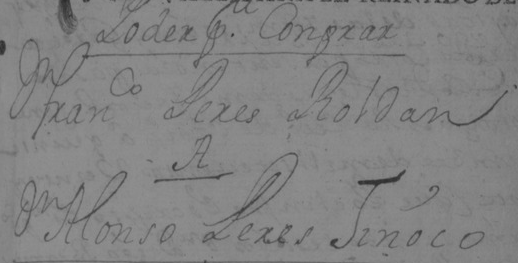 REINADO DE
Poder pa. Conprar
Dn Franco Peres Roldan
A
Dn Alonso Peres Tinoco